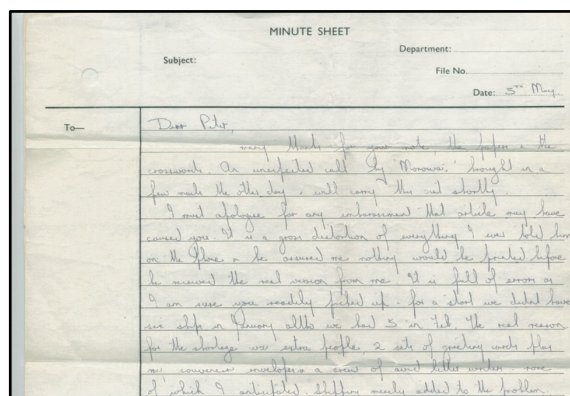 MINUTE SHEET
Department:
Subject:
File No.
Date: 5th May
To—
Dear Peter,
many thanks for your note, the papers & the
crosswords. An unexpected call by "Monowai," brought in a
few mails the other day & will carry this out shortly.
I must apologise for any embarrassment that article may have
caused you. It is a gross distortion of everything I ever told him
on the phone & he assured me nothing would be printed before
he received the real version from me. It is full of errors as
I am sure you readily picked up - for a start we didnt have
six ships in January altho we had 3 in Feb. The real reason
for the shortage was extra people, 2 sets of greeting cards plus
my souvenir envelopes & a crew of avid letter writers none
of which I anticipated. Shipping merely added to the problem.